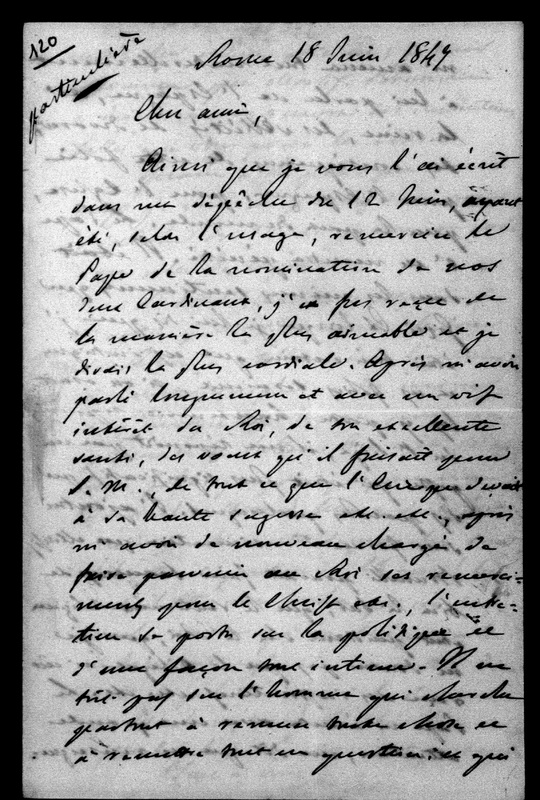 120
particulière
Rome 18 Juin 1847
Cher ami,
Ainsi que je vous l'ai écrit
dans ma dépêche du 12 Juin, ayant
été, selon l'usage, remercier le
Pape de la nomination de nos
deux Cardinaux, j'en fus reçu de
la manière la plus aimable et je
dirais la plus cordiale. Après m'avoir
parlé longuement et avec un vif
intérêt du Roi, de son excellente
santé, des vœux qu'il faisait pour
S. M., de tout ce que l'Europe devait
à sa haute sagesse etc. etc., après
m'avoir de nouveau chargé de
faire parvenir au Roi ses remercî-
ments pour le Christ etc., l'entre-
tien se porta sur la politique et
d'une façon tout intime. Il ne
fut pas l'homme qui cherche
partout à toute chose et
à remettre tout en question, et qui